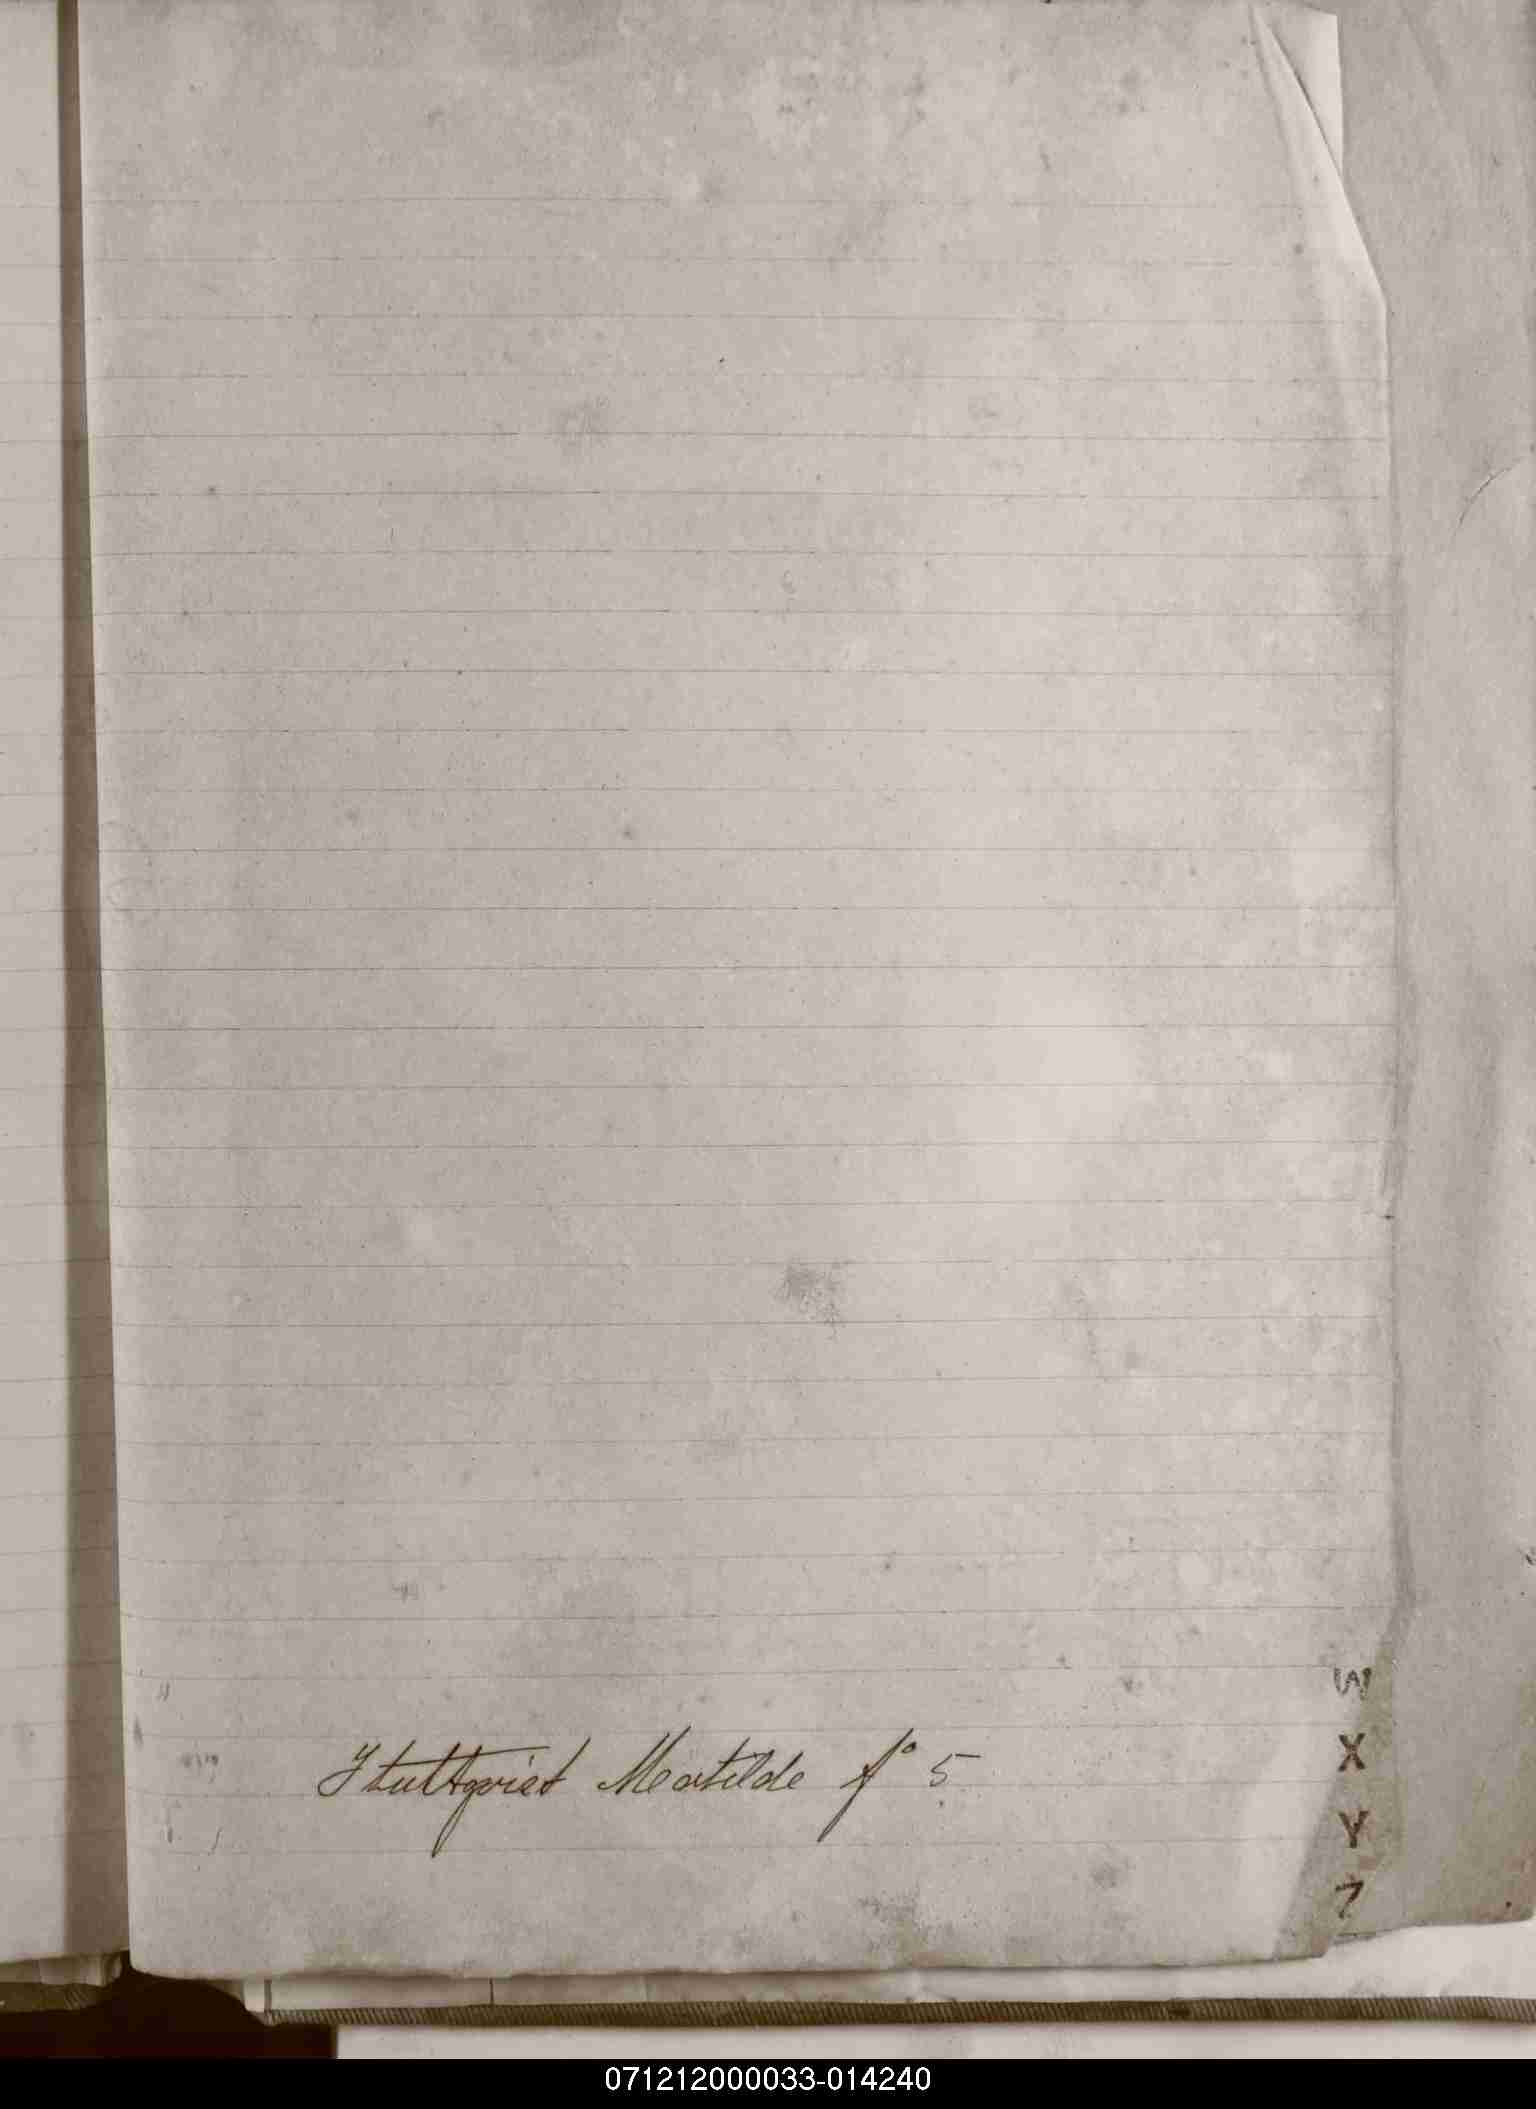 Hultqvist Matilde fº 5
W
X
Y
Z
071212000033-014240